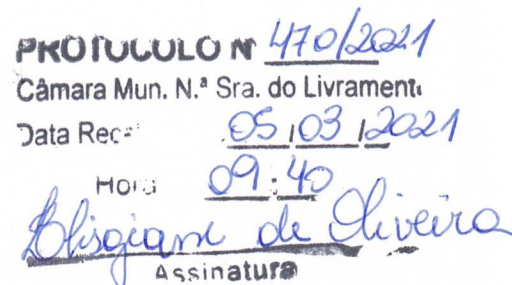 PROTOCOLO Nº 470/2021
Câmara Mun. N.ª Sra. do Livramento
Data Rec. 05/03/2021
Hora 09:40
de Oliveira
Assinatura